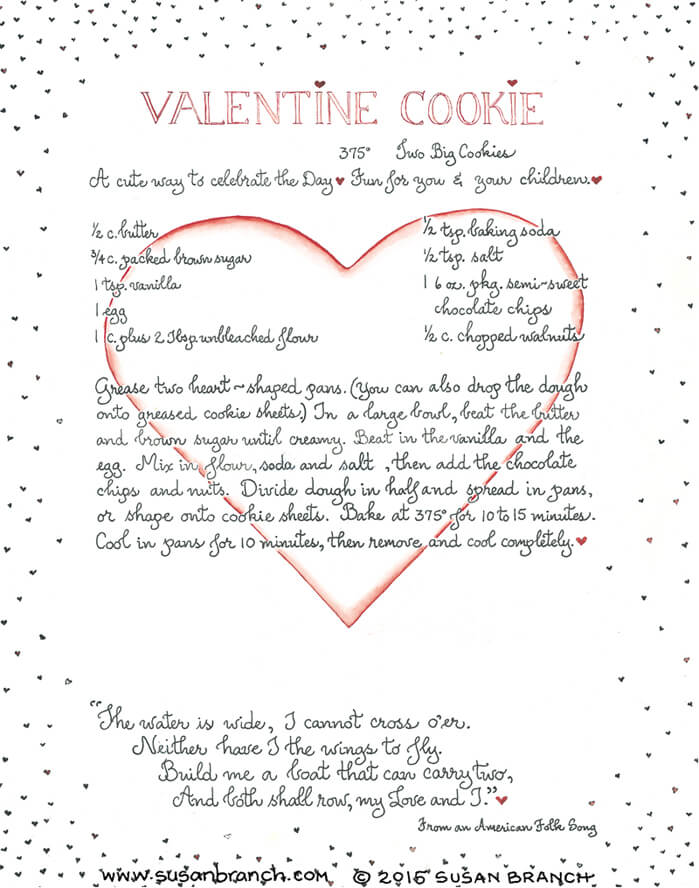 VALENTINE COOKIE
375° Two Big Cookies
A cute way to celebrate the Day ♥ Fun for you & your children. ♥
½ c. butter
¾ c. packed brown sugar
1 tsp. vanilla
1 egg
1 c. plus 2 Tbsp unbleached flour
½ tsp. baking soda
½ tsp. salt
1 6 oz. pkg. semi-sweet
chocolate chips
½ c. chopped walnuts
Grease two heart-shaped pans. (You can also drop the dough
onto greased cookie sheets.) In a large bowl, beat the butter
and brown sugar until creamy. Beat in the vanilla and the
egg. Mix in flour, soda and salt , then add the chocolate
chips and nuts. Divide dough in half and spread in pans,
or shape onto cookie sheets. Bake at 375° for 10 to 15 minutes.
Cool in pans for 10 minutes, then remove and cool completely. ♥
"The water is wide, I cannot cross o'er.
Neither have I the wings to fly.
Build me a boat that can carry two,
And both shall row, my Love and I." ♥
From an American Folk Song
www.susanbranch.com © 2015 SUSAN BRANCH